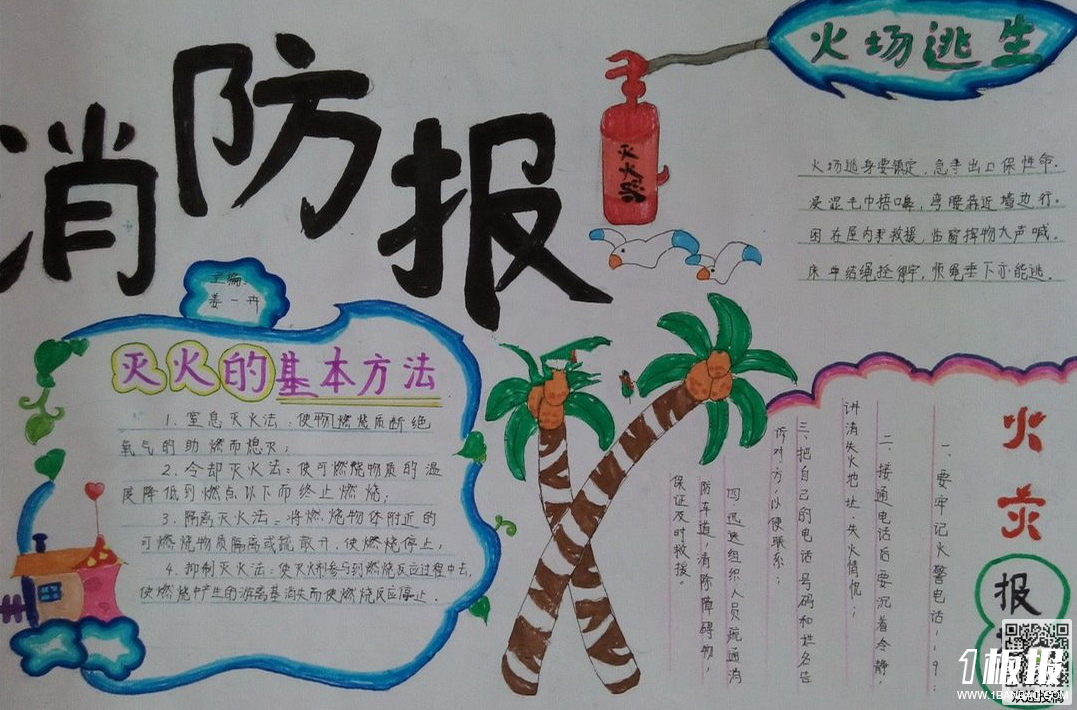 消防报
主编:
姜一卉
灭火器
火场逃生
火场逃身要镇定,急寻出口保性命.
浸湿毛巾捂口鼻,弯腰靠近墙边行。
困在屋内求救援,临窗挥物大声喊.
床单结绳拴牢,慢绳垂下亦能逃。
灭火的基本方法
1.窒息灭火法:使物燃烧质断绝
氧气的助燃而熄灭;
2.冷却灭火法:使可燃烧物质的温
度降低到燃点以下而终止燃烧;
3.隔离灭火法=将燃烧物体附近的
可燃烧物质隔离或疏散开,使燃烧停止;
4.抑制灭火法:使灭火剂参与到燃烧反应过程中去,
使燃烧中产生的游离基消失而使燃烧反应停止.
火灾
报
一、要牢记火警电话119;
二、接通电话后要沉着冷静,
讲清失火地址、失火情况;
三、把自己的电话号码和姓名告
诉对方,以便联系;
四、迅速组织人员疏通消
防车道,清除障碍物,
保证及时救援。
1板报
WWW.1BANBAO.COM
欢迎投稿